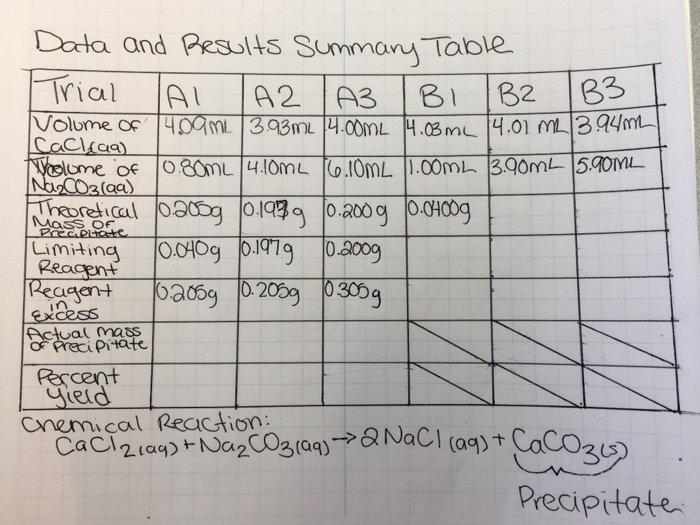 Data and Results Summary Table
Trial A1 A2 A3 B1 B2 B3
Volume of CaCl(aq) 4.09mL 3.93mL 4.00mL 4.03mL 4.01 mL 3.94mL
Volume of Na2CO3(aq) 0.80mL 4.10mL 6.10mL 1.00mL 3.90mL 5.90mL
Theoretical Mass of Precipitate 0.205g 0.197g 0.200g 0.0400g
Limiting Reagent 0.040g 0.197g 0.200g
Reagent in Excess 0.205g 0.205g 0.305g
Actual mass of Precipitate
Percent Yield
Chemical Reaction:
CaCl2(aq) + Na2CO3(aq) → 2NaCl (aq) + CaCO3(s)
Precipitate